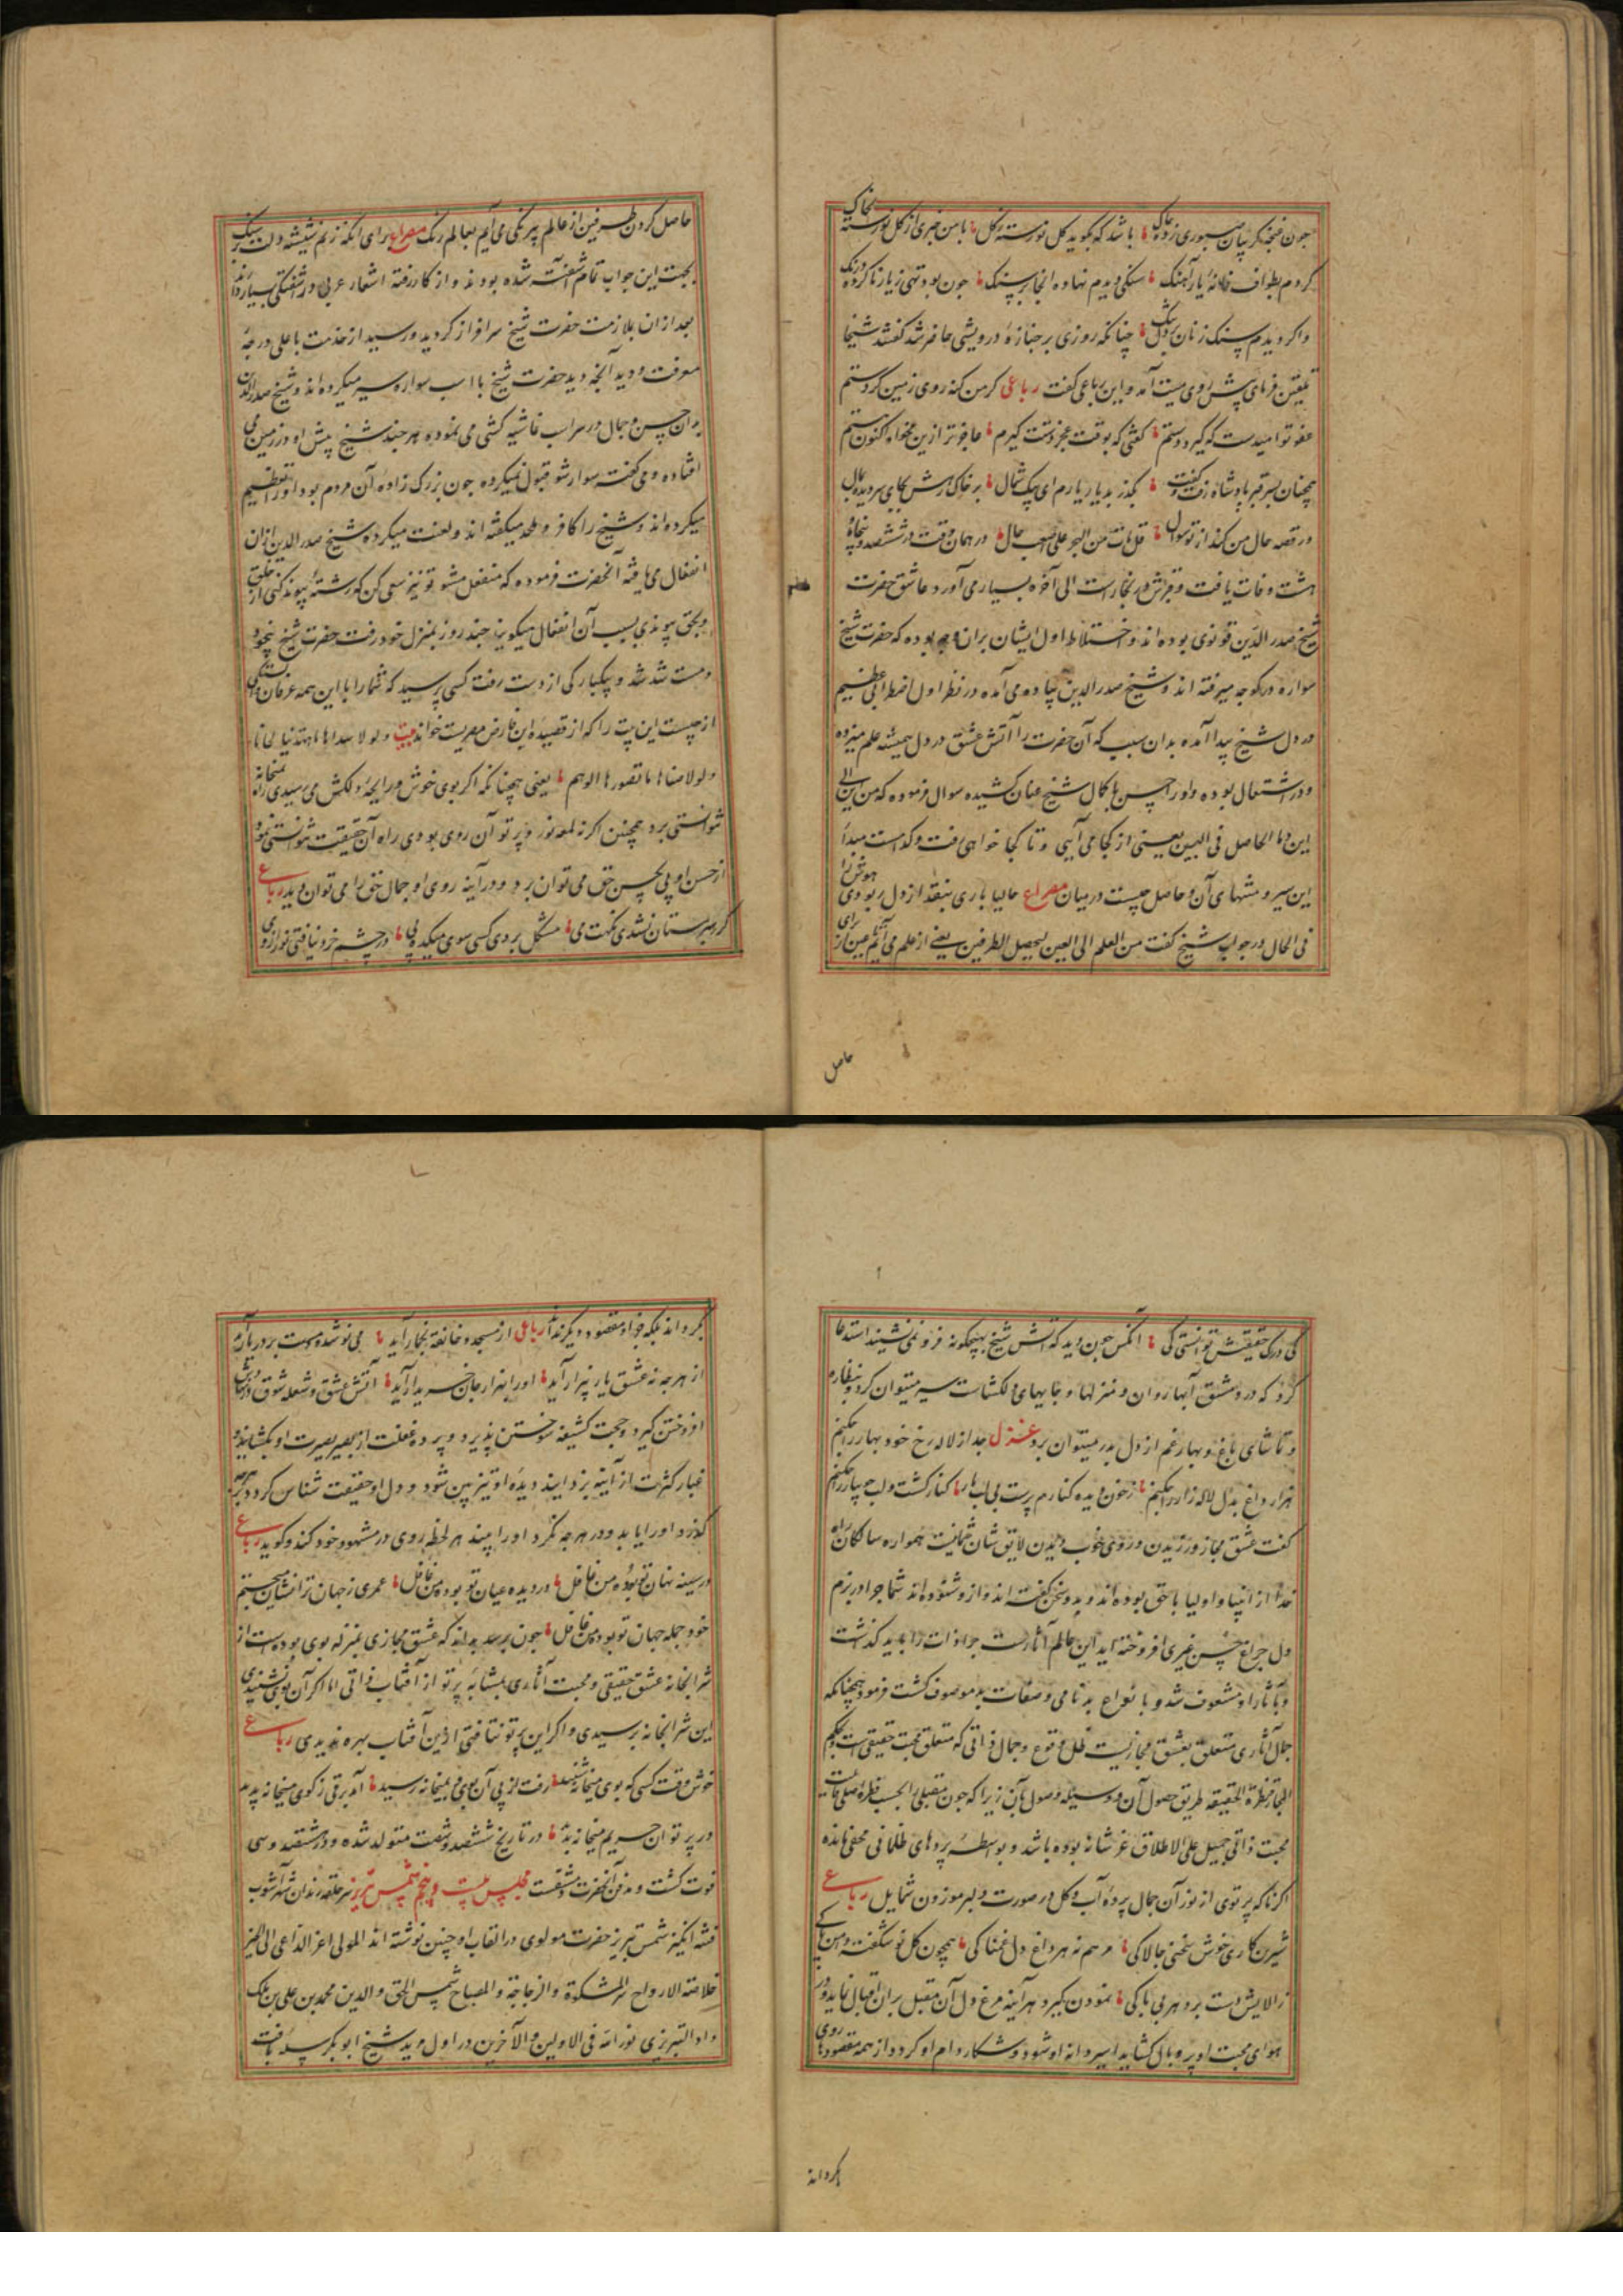 چون غنچه گریبان صبوری زده چاک باشد که بگوید گل نورسته ز گل با من خبری از گل نورسته بخاک
کردم بطواف خانهٔ یار آهنگ سنگی دیدم نهاده آنجا بر سنگ چون بود تهی ز یار ناکرده درنگ
واکردیدم سنک زنان بر دل تنگ چنانکه روزی بر جنازهٔ درویشی حاضر شد گفتند شیخا
تلقین فرمای پیش روی میت آمد و این رباعی گفت رباعی کر من کنه روی زمین کردستم
عفو تو امیدست که گیرد دستم گفتی که بوقت عجز دستت گیرم عاجزتر ازین مخواه کاکنون هستم
همچنان بر سر قبر پادشاه رفت و گفت بگذر بدیار یارم ای پیک شمال بر خاک رهش بجای سر دیده بمال
ور قصه حال من کند از تو سوال قل مات من الهجر علی اصعب حال در همان وقت در ششصد و پنجاه
هشت وفات یافت و قبرش در بخاراست الی آخره بسیار می آورد عاشق حضرت
شیخ صدر الدین قونوی بوده اند و اختلاط اول ایشان بران وجه بوده که حضرت شیخ
سواره در کوچه میرفته اند و شیخ صدر الدین پیاده می آمده در نظر اول اضطرابی عظیم
در دل شیخ پیدا آمده بدان سبب که آن حضرت را آتش عشق در دل همیشه علم میزده
و در اشتعال بوده و او را حسن با کمال شیخ عنان کشیده سوال فرموده که من این الی
این و ما الحاصل فی البین یعنی از کجا می آیی و تا کجا خواهی رفت و کدامست مبدأ
این سیر و منتهای آن و حاصل چیست در میان مصراع حالیا باری بنقد از دل ربودی هوش را
فی الحال در جواب شیخ گفت من العلم الی العین لتحصل الطرفین یعنی از علم می آیم بعین از برای
حاصل
حاصل کردن طرفین از عالم بیرنگی می آیم بعالم رنگ مصراع برای آنکه زنم شیشه دلت بر سنگ
بجهت این جواب تمام آشفته شده بودند و از کار رفته اشعار عربی در آشفتگی بسیار دارند
بعد ازان بملازمت حضرت شیخ سرافراز گردید و رسید از خدمت باعلی درجهٔ
معرفت و دید آنچه دید حضرت شیخ با اسب سواره سیر میکرده اند و شیخ صدر الدین
بدان حسن و جمال در سر اسب غاشیه کشی می نموده هر چند شیخ پیش او در زمین می
افتاده و می گفته سوار شو قبول نمیکرده چون بزرگ زادهٔ آن مردم بود او را تعظیم
میکرده اند و شیخ را کافر و ملحد میگفته اند و لعنت میکرده شیخ صدر الدین ازان
انفعال می یافته آنحضرت فرموده که منفعل مشو تو نیز سعی کن که رشتهٔ پیوند کنی از خلق
و بحق پیوندی بسبب آن انفعال میگویند چند روز بمنزل خود رفت حضرت شیخ بیخود
و مست شد شد و بیکبارگی از دست رفت کسی پرسید که شما را با این همه عرفان بستگی
از چیست این بیت را که از قصیده ابن فارض مصریست خواند بیت و لولا شذاها ما اهتدیت لحانها
و لولا سناها ما تصورها الوهم یعنی همچنانکه اگر بوی خوش و رایحهٔ دلکش می نرسیدی راه بمیخانه
نتوانستی برد همچنین اگر نه لمعه نور و پرتو آن روی بودی راه آن حقیقت نتوانستی نمود
از حسن او پی بحسن حق می توان برد و در آینه روی او جمال حق را می توان دید رباعی
گر رهبر مستان نشدی نکهت می مشکل بردی کسی سوی میکده پی در چشم خرد نیافتی نور ازوی
کی درک حقیقتش توانستی کی آنکس چون دید که آتش شیخ بهیچگونه فرو نمی نشیند استدعا
کرد که در دمشق آبها روان و منزلها و جایهای دلکشاست سیر میتوان کرد و بنظاره
و تماشای باغ و بهار غم از دل بدر میتوان برد غزل جدا از لاله رخ خود بهار را چکنم
هزار داغ بدل لاله زار را چکنم ز خون دیده کنارم پرست بی لب یار کنار کشت و لب جویبار را چکنم
گفت عشق مجاز ورزیدن و روی خوب دیدن لایق شان شما نیست همواره سالکان راه
خدا از انبیا و اولیا با حق بوده اند و بدو سخن گفته اند و ازو شنوده اند شما چرا در بزم
دل چراغ حسن غیری افروخته اید این عالم آثارست چرا ذات را باید گذاشت
و بآثار او مشعوف شد و بانواع بدنامی و صفات بد موصوف گشت فرمود همچنانکه
جمال آثاری متعلق بعشق مجازیست ظل و فرع جمال ذاتی که متعلق محبت حقیقی است و بحکم
المجاز قنطرة الحقیقه طریق حصول آن و وسیله وصول بآن زیرا که چون مقبلی را بحسب فطرة اصلی قابلیت
محبت ذاتی جمیل علی الاطلاق عز شانه بوده باشد و بواسطهٔ پردهای ظلمانی مخفی مانده
اگر ناگه پرتوی از نور آن جمال پردهٔ آب و گل در صورت دلبر موزون شمایل رباعی
شیرین کاری خوش سخنی چالاکی مرهم نه هر داغ دل غمناکی همچون گل نو شگفته دامن پاکی
ز الایش دست برد هر بی باکی نمودن گیرد هر آینه مرغ دل آن مقبل بران اقبال نماید و در
هوای محبت او پر و بال گشاید اسیر دانه او شود و شکار دام او گردد از همه مقصودها روی
گرداند
گرداند بلکه جز او مقصود دیگر نداند رباعی از مسجد و خانقه بخمار آید می نوشد و مست بر در یار آید
از هر چه نه عشق یار بیزار آید او را بهزار جان خریدار آید آتش عشق و شعله شوق در نهادش
افروختن گیرد و حجب کثیفه سوختن پذیرد و پرده غفلت از بصر بصیرت او بگشایند و
غبار کثرت از آینه بزدایند دیدهٔ او تیز بین شود و دل او حقیقت شناس گردد از هرچه
گذرد او را یابد و در هر چه نگرد او را بیند هر لحظه روی در مشهود خود کند و گوید رباعی
در سینه نهان تو بودهٔ من غافل در دیده عیان تو بوده من غافل عمری ز جهان ترا نشان میجستم
خود جمله جهان تو بوده من غافل چون برسد بداند که عشق مجازی بمنزله بوی بوده است از
شرابخانه عشق حقیقی و محبت آثاری بمثابه پرتو از آفتاب ذاتی اما اگر آن بوی نشنیدی
باین شرابخانه نرسیدی و اگر این پرتو نتافتی ازین آفتاب بهره ندیدی رباعی
خوش وقت کسی که بوی میخانه شنید رفت از پی آن بوی و بمیخانه رسید آمد برقی ز کوی میخانه پدید
در پرتو آن حریم میخانه بدید در تاریخ ششصد و شصت متولد شده و در هفتصد و سی
فوت گشت و مدفن آنحضرت دمشقست مجلس بیست و پنجم شمس تبریز سر حلقه رندان شهر آشوب
فتنه انگیز شمس تبریز حضرت مولوی در القاب او چنین نوشته اند المولی اعز الداعی الی الخیر
خلاصة الارواح سر المشکوة و الزجاجة و المصباح شمس الحق والدین محمد بن علی بن ملک
داد التبریزی نور الله فی الاولین و الآخرین در اول مرید شیخ ابوبکر سله بافت